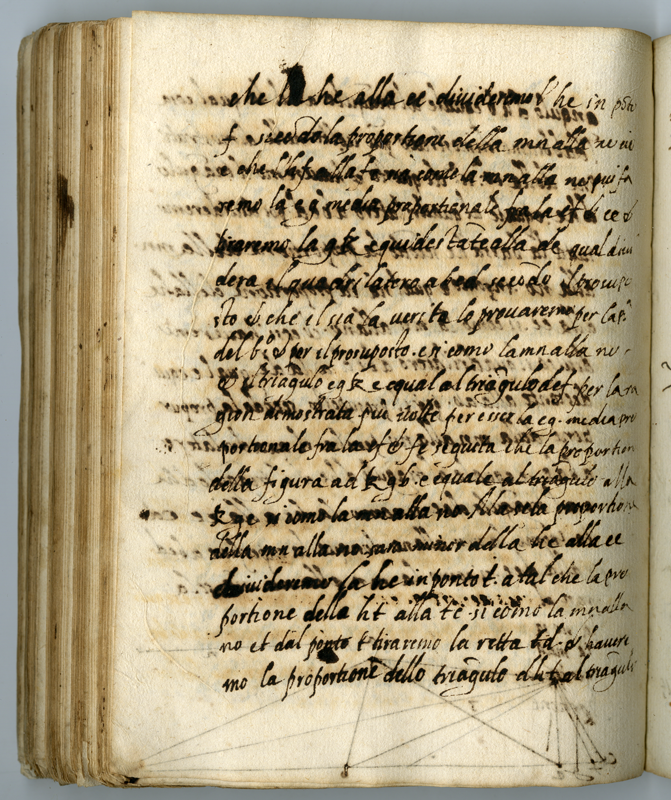 che la he alla ec divideremo l' he in
f secōdo la proportione della mn alla no
che l' hf alla f sia come la mn alla no poi fa
remo la eg media proportionale fra la ef & ec &
tiraremo la gk equidestāte alla de qual divi
dera il quadrilatero abcd secōdo il
sto & che il sia la verita lo provaremo per la
del & per il prosuposto. come la mn alla no
& il triāgulo egk e equal al triāgulo def per la ra
gion dimostrata piu volte per esser la eg. media pro
portionale fra la ef & seguita che la proportion
della figura adkgb. e equale al triāgulo alla
kge si como la mn alla no Ma se la proportione
della mn alla no sara minor della he alla ec
divideremo la he in ponto t. a tal che la pro
portione della ht alla te. si como la mn alla
no et dal ponto t tiraremo la retta td. & havere
mo la proportione dello triāgulo dht al triāgulo